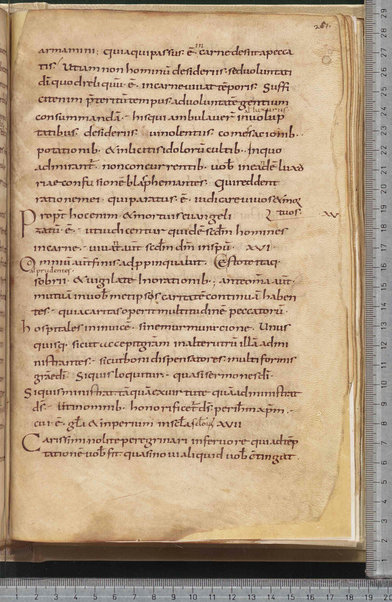 261.
armamini; quia qui passus ē in carne desiit a pecca
tis. Ut iam non hominū desideriis. sed voluntati
di quod reliquū ē. in carne vivat tēporis. Suffi
cit enim p̄teritū tempus ad voluntatē gentium
consummandā. his qui ambulaver in
desideriis. vinolentiis. comesationib.
potationib. & inlicitis idolorū cultib. In quo
admirant. non concurrentib. vob in eadē luxu
riae confusionē blasphemantes. Qui reddent
rationem ei. qui paratus ē. iudicare vivos et mor
tuos. XV
Propt hoc enim & mortuis evangeli
zatū ē. ut iudicentur quidē scdm homines
in carne. vivant aut scdm dm in spū. XVI
Omniū aut finis adpropinquabit. Estote itaq
prudentes
sobrii. & vigilate in orationib. ante omā aut.
mutuā in vob metipsos caritatē continuā haben
tes. quia caritas operit multitudinē peccatorū.
hospitales in invicē. sine murmuratione. Unus
quisq. sicut accepit grām in alterutrū illā admi
nistrantes. sicut boni dispensatores. multiformis
grāe di. Si quis loquitur. quasi sermones di.
Si quis ministrat. tāquā ex virtute quā administrat
ds. Ut in omnib. honorificet ds per ihm xpm.
cui ē. glā & inperium in scla sclorū XVII
Carissimi nolite peregrinari in fervore qui ad tēp
tationē vob fit. quasi novi aliquid vob cōtingat.